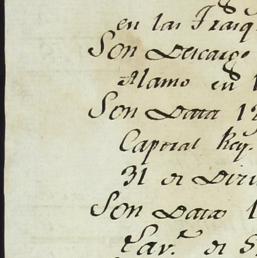 en las Fraiq
Son Descargo
Alamo en 1
Son Data 12
Caporal Rey.
31 de Dici
Son Data 1
Cav.^a de S